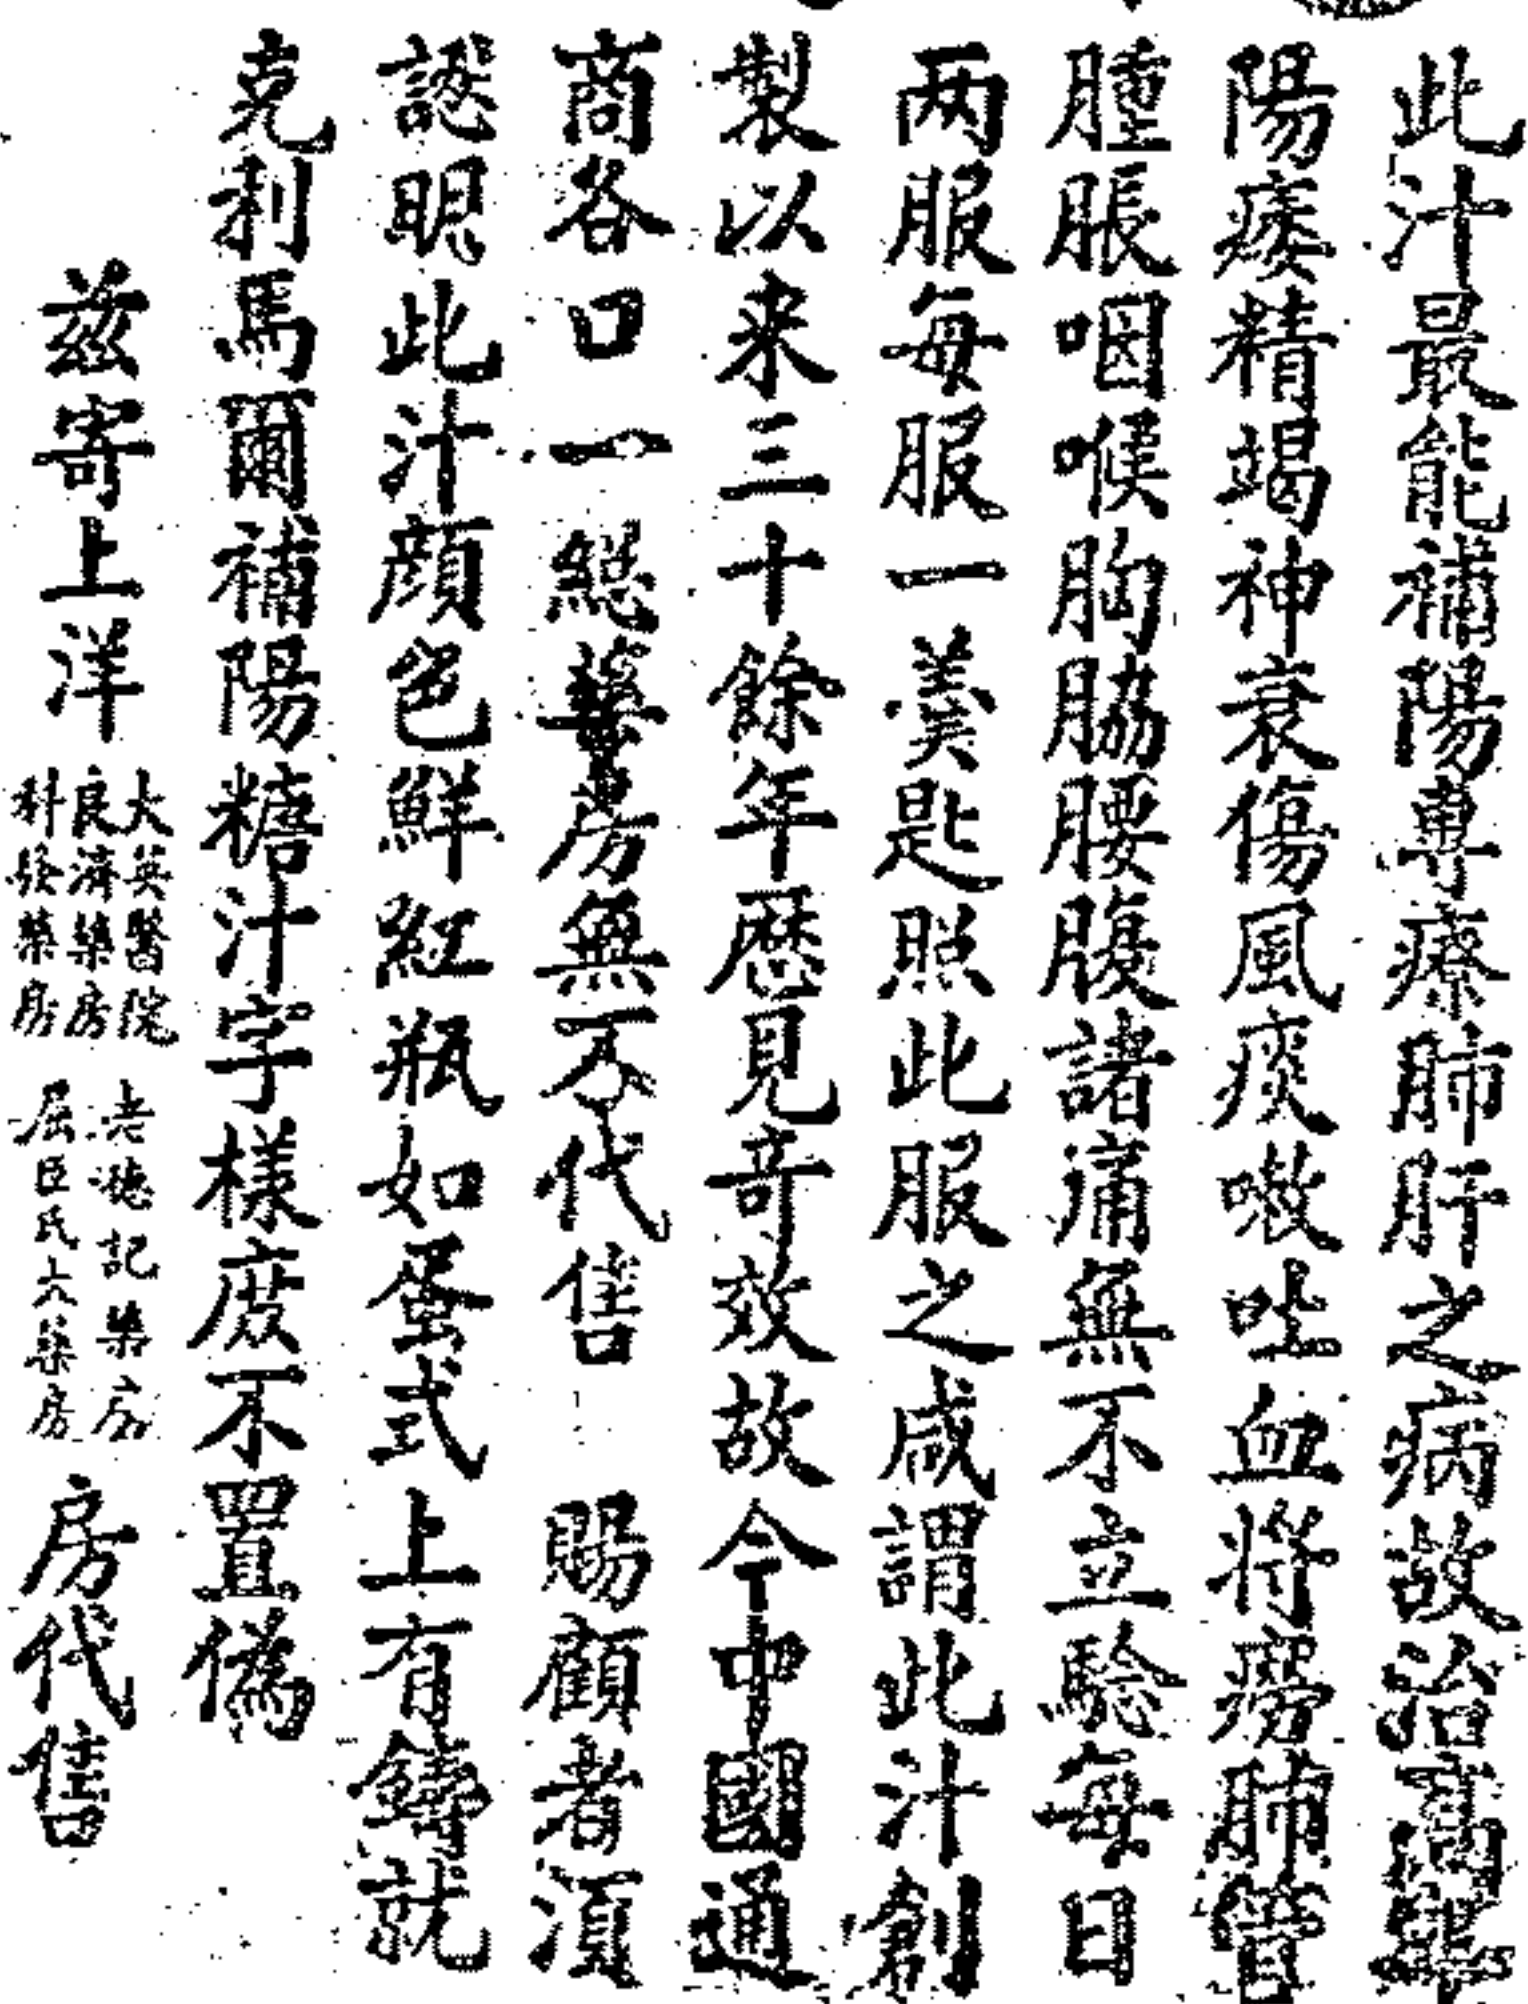 此汁最能補陽專療肺肝之病故治高舉
陽痿精竭神衰傷風痰嗽吐血將癆肺管
腫脹咽喉胸脇腰腹諸痛無不立驗每日
两服每服一羹匙照此服之咸謂此汁創
製以来三十餘年歷見竒效故今中國通
商各口一總藥房無不代售 賜顧者湏
認眀此汁顔色鮮紅瓶如蛋式上有鑄就
克利馬爾補陽糖汁字樣庻不置偽
兹寄上洋
大英醫院
良濟藥房
科發藥房
老德記藥房
屈臣氏大藥房
房代售